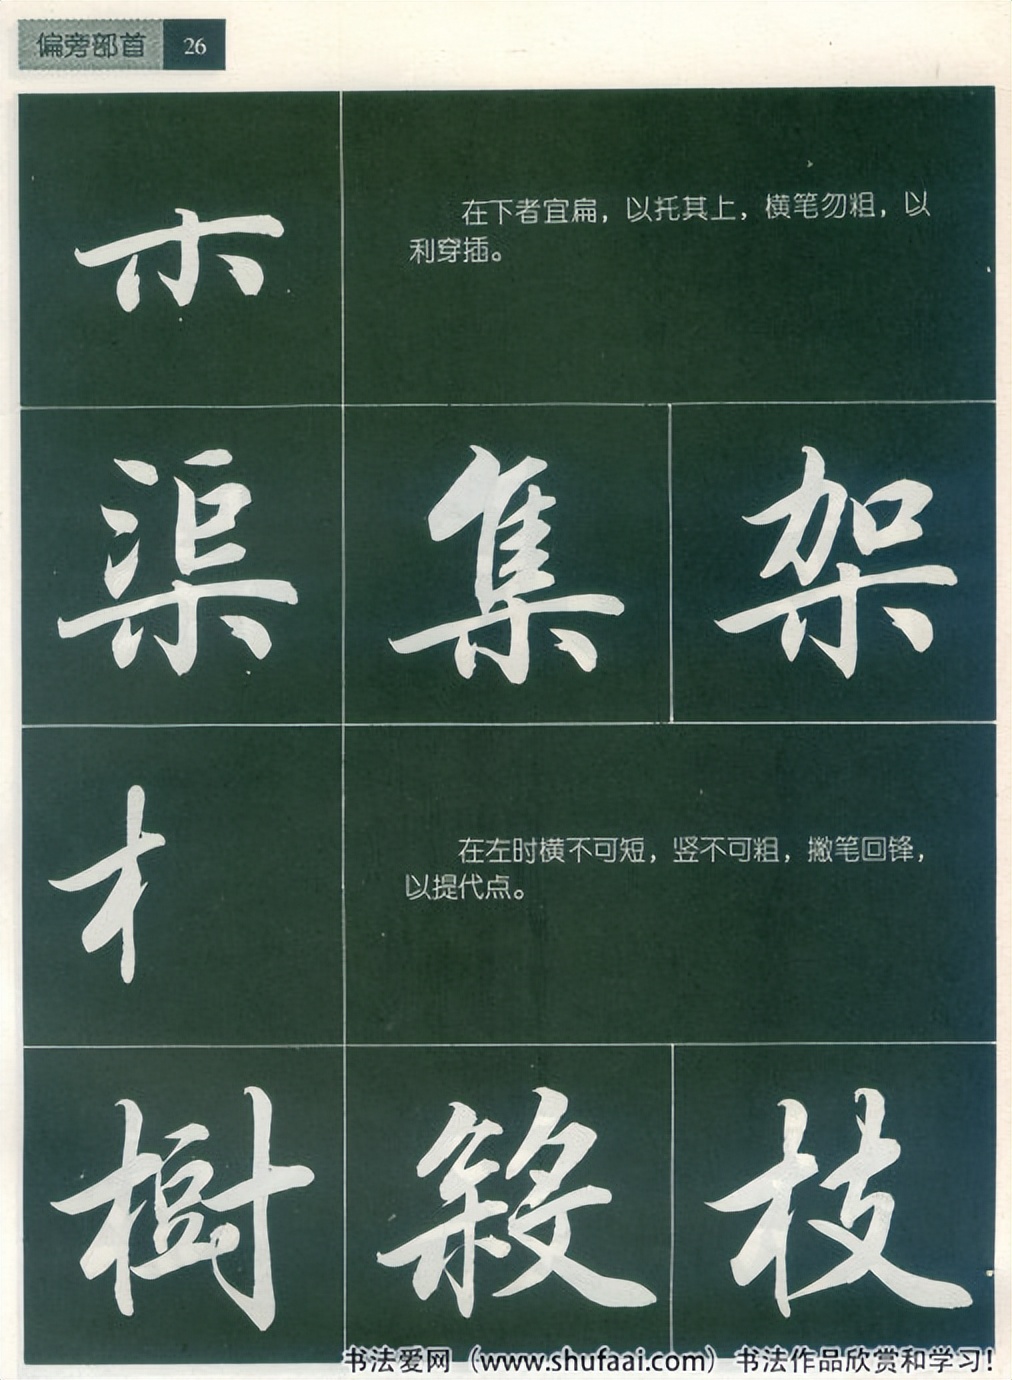 偏旁部首 26
在下者宜扁，以托其上，横笔勿粗，以
利穿插。
渠 集 架
在左时横不可短，竖不可粗，撇笔回锋，
以提代点。
樹 叙 枝
书法爱网（www.shufaai.com）书法作品欣赏和学习！